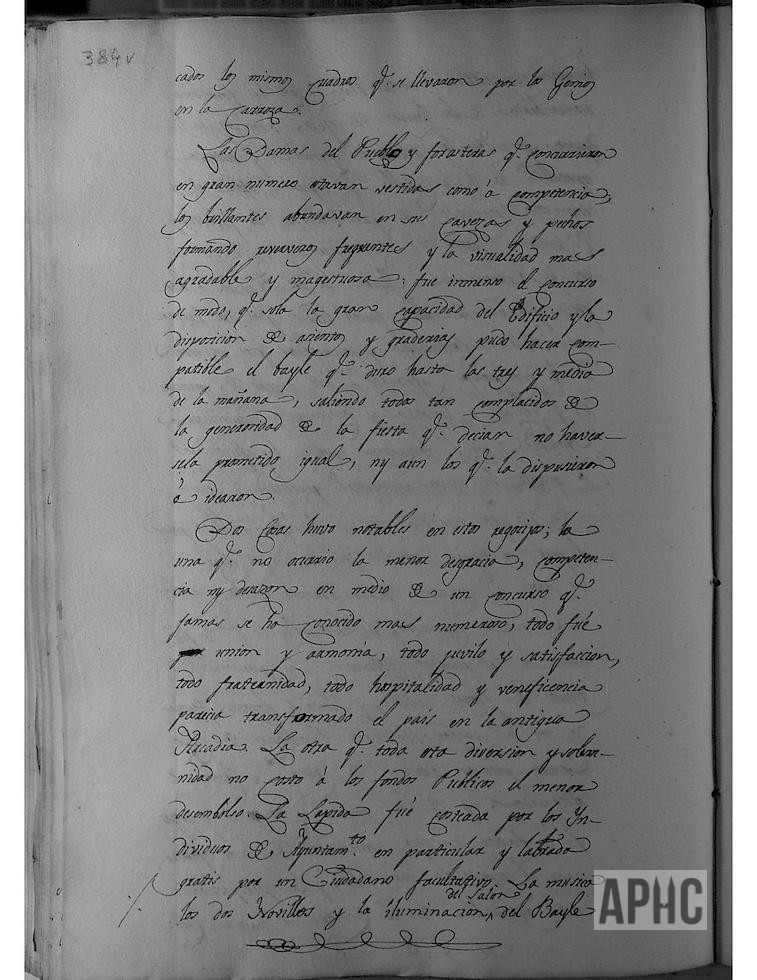 384v
cados los mismos quadros q.e se llevaron por los Genios
en la Carroza.
Las Damas del Pueblo y forasteras q.e concurrieron
en gran numero estavan vestidas como á competencia,
los brillantes abundavan en sus cavezas y pechos
formando reververos frequentes y la visualidad mas
agradable y magestuosa: fue inmenso el concurso
de modo, q.e solo la gran capacidad del Edificio y la
disposicion de asientos y graderias pudo hacer com-
patible el bayle q.e duro hasta las tres y media
de la mañana, saliendo todos tan complacidos de
la generosidad de la fiesta q.e decian no haver-
sela prometido igual, ny aun los q.e la dispusieron
ó idearon.
Dos Cosas huvo notables en estos regocijos; la
una q.e no ocurrio la menor desgracia, competen-
cia ny desazon en medio de un concurso q.e
jamas se ha conocido mas numeroso, todo fué
union y armonia, todo juvilo y satisfaccion,
todo fraternidad, todo hospitalidad y veneficencia
parecia transformado el pais en la antigua
Arcadia. La otra q.e toda esta diversion y solem-
nidad no costo á los fondos Publicos el menor
desembolso. La Lapida fué costeada por los In-
dividuos de Ayuntam.to en particular y labrada
gratis por un Ciudadano facultativo. La musica
los dos Novillos y la iluminacion del Salon del Bayle
APHC